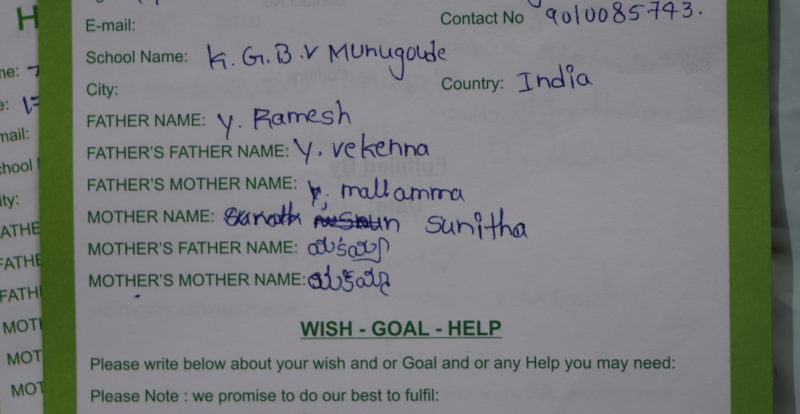 E-mail:
Contact No 9010085743.
School Name: K.G.B.V Munugode
City:
Country: India
FATHER NAME: Y. Ramesh
FATHER'S FATHER NAME: Y. Vekenna
FATHER'S MOTHER NAME: Y. mallamma
MOTHER NAME: sunitha
MOTHER'S FATHER NAME:
MOTHER'S MOTHER NAME:
WISH - GOAL - HELP
Please write below about your wish and or Goal and or any Help you may need:
Please Note : we promise to do our best to fulfil: